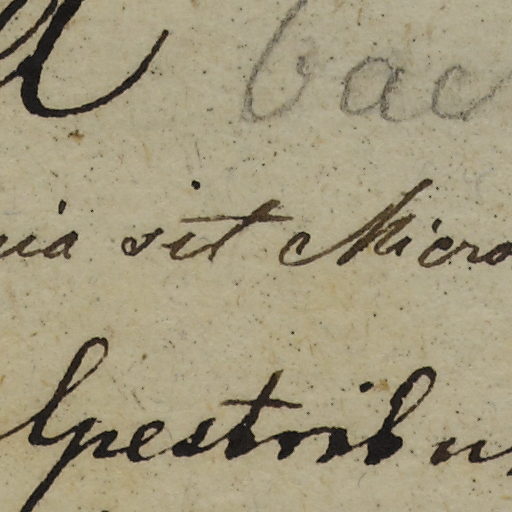 bac
ia sit Micro
lpestribu